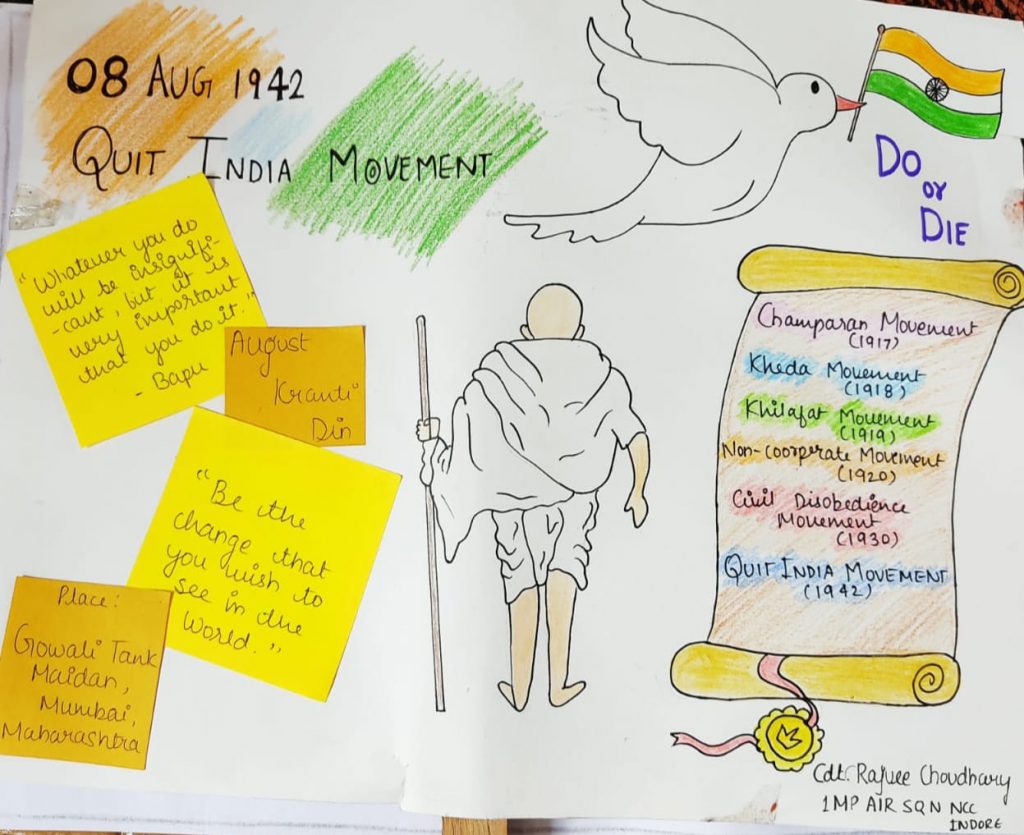 08 AUG 1942
QUIT INDIA MOVEMENT
DO
or
DIE
"Whatever you do
will be insignifi-
-cant, but it is
very important
that you do it."
- Bapu
August
Kranti
Din
"Be the
change that
you wish to
see in the
World."
Place:
Gowali Tank
Maidan,
Mumbai,
Maharashtra
Champaran Movement
(1917)
Kheda Movement
(1918)
Khilafat Movement
(1919)
Non-coorperate Movement
(1920)
Civil Disobedience
Movement
(1930)
QUIT INDIA MOVEMENT
(1942)
Cdt. Rajvee Choudhary
1MP AIR SQN NCC
INDORE